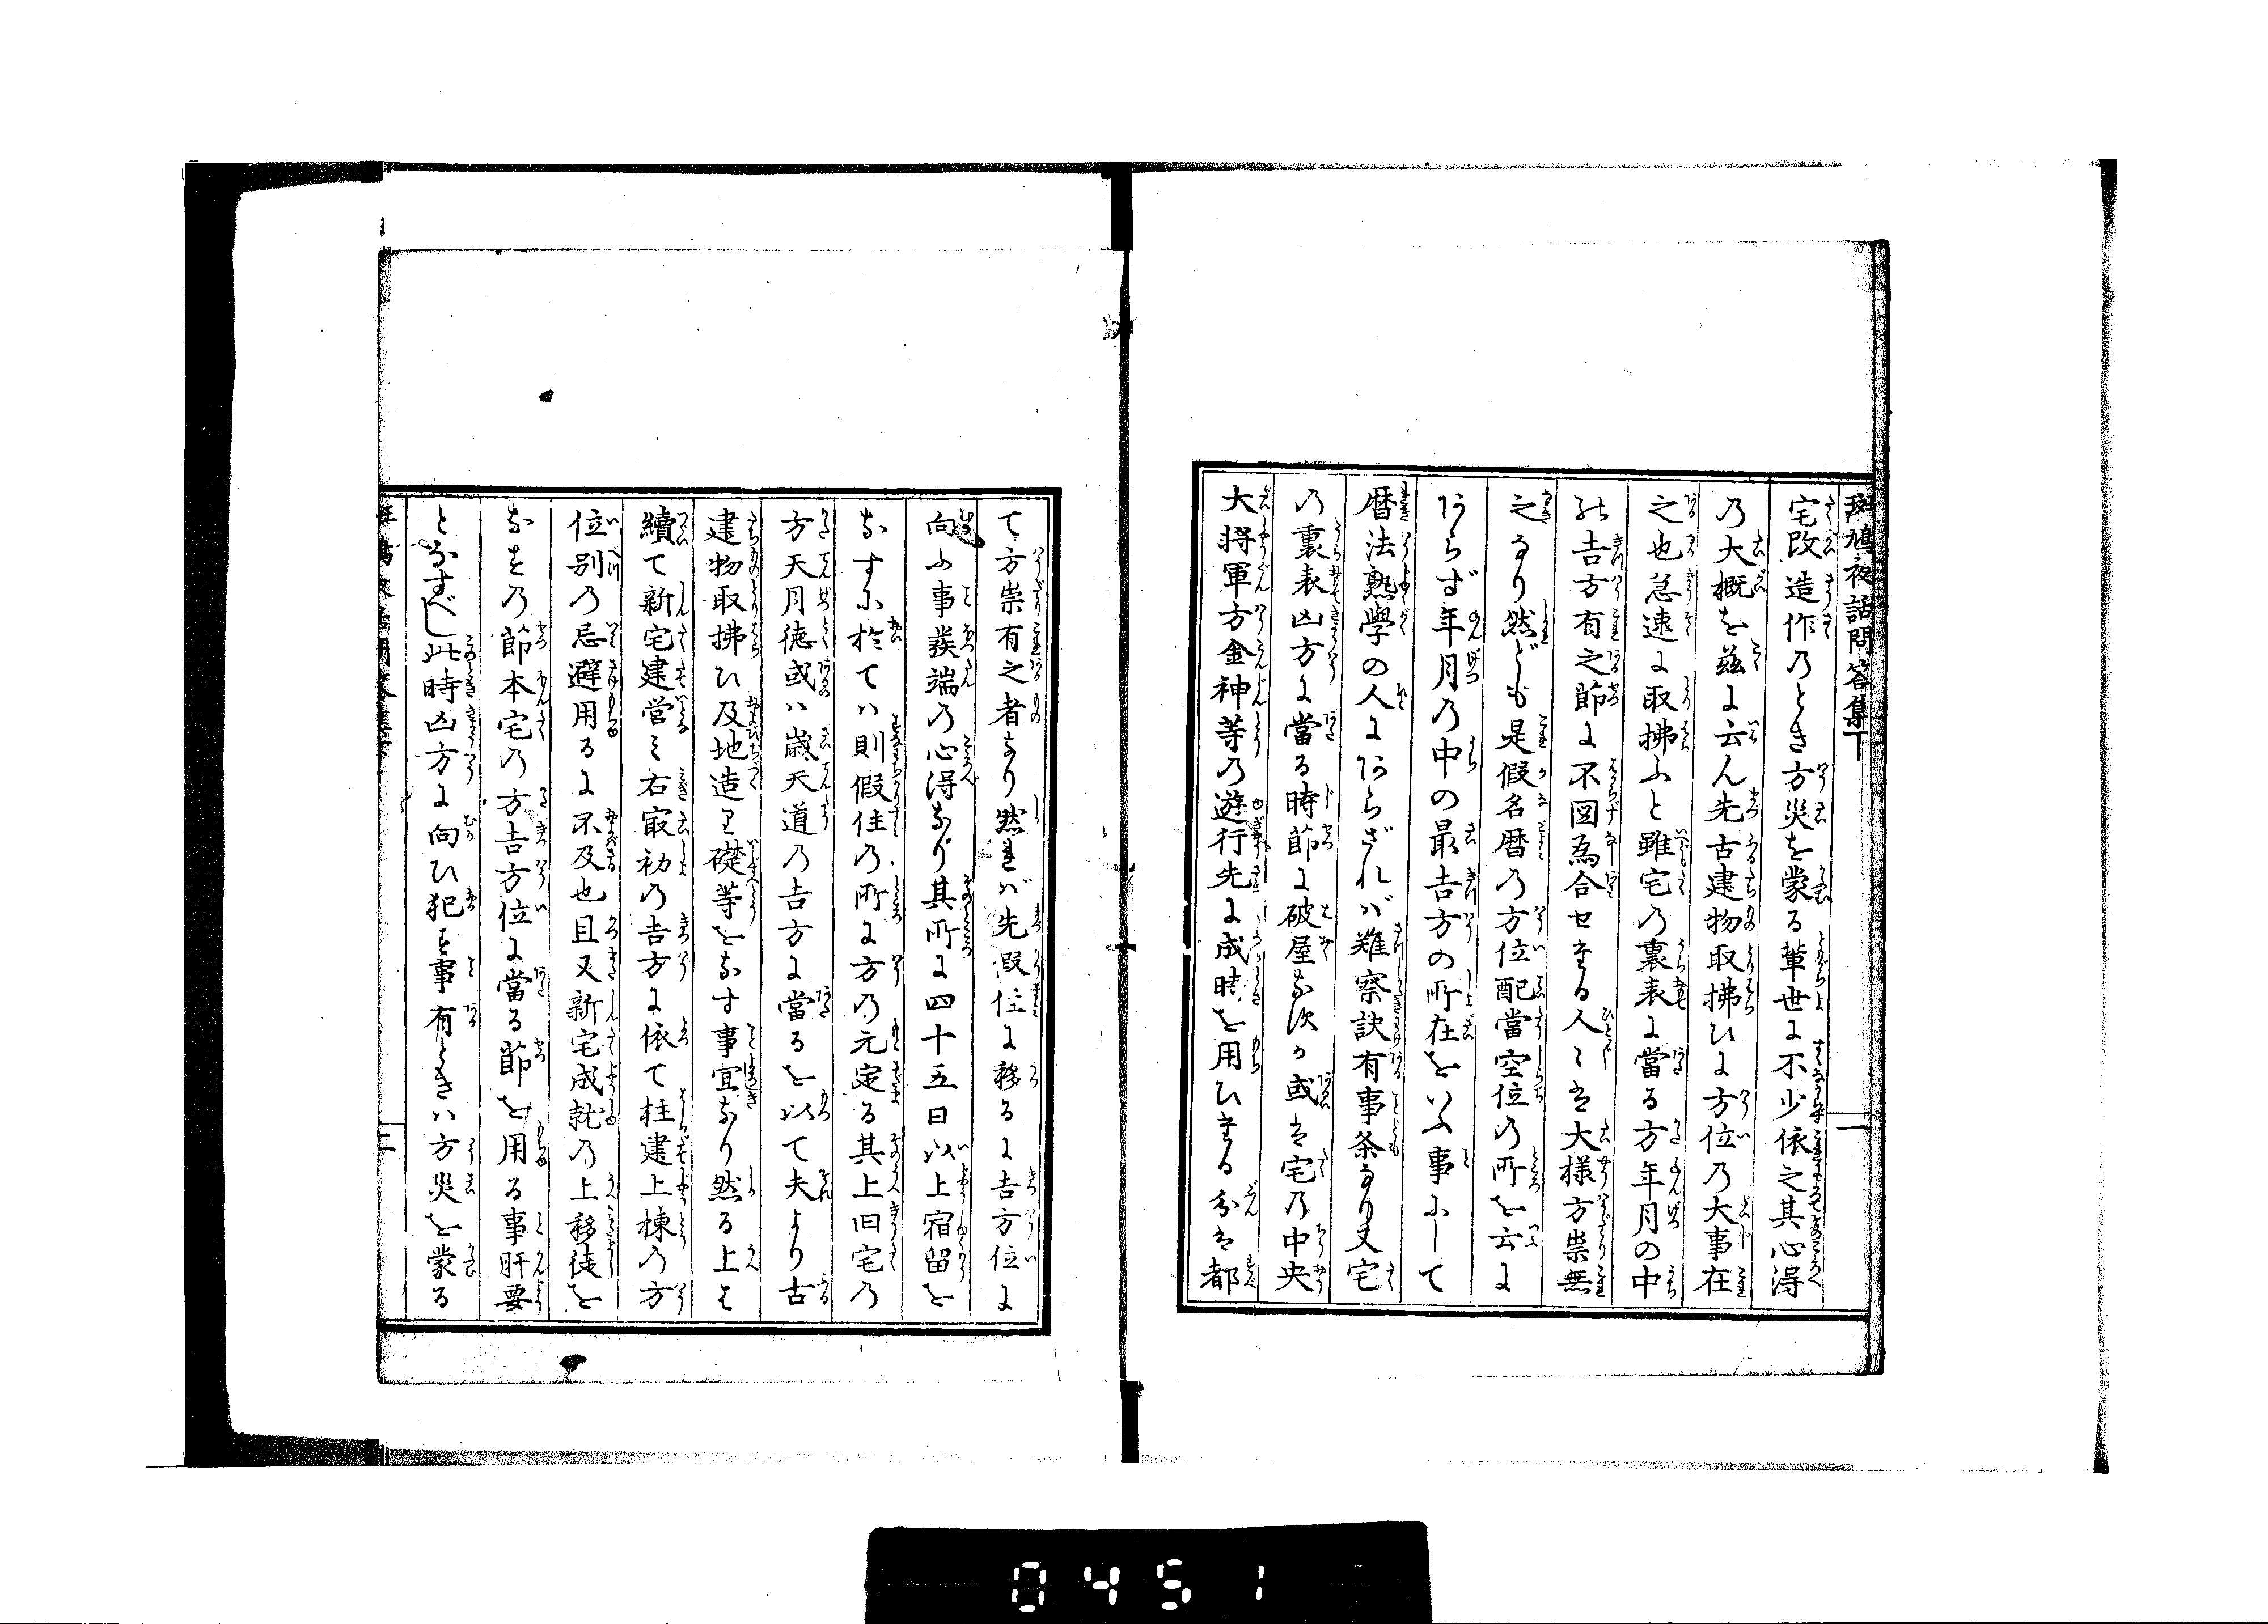 斑鳩夜話問答集下
一
宅改造作のとき方災を蒙る輩世に不少依之其心得
の大概を茲に云ん先古建物取拂ひに方位の大事在
之也急速に取拂ふと雖宅の裏表に當る方年月の中
吉方有之節に不図為合せたる人々は大様方祟無
之なり然ども是假名暦の方位配當空位の所を云に
あらず年月の中の最吉方の所在をいふ事にして
暦法熟學の人にあらざれば難察訣有事条なり又宅
の裏表凶方に當る時節に破屋なすか或は宅の中央
大将軍方金神等の遊行先に成時を用ひたる分は都
て方祟有之者なり然ればが先假住に移るに吉方位に
向ふ事発端の心得なり其所に四十五日以上宿留を
なすに於ては則假住の所に方の元定る其上旧宅の
方天月徳或は歳天道の吉方に當るを以て夫より古
建物取拂ひ及地造り礎等をなす事宜なり然る上は
續て新宅建営し右最初の吉方に依て柱建上棟の方
位別の忌避用るに不及也且又新宅成就の上移徒を
なすの節本宅の方吉方位に當る節を用る事肝要
となすべし此時凶方に向ひ犯す事有ときは方災を蒙る
二
0451